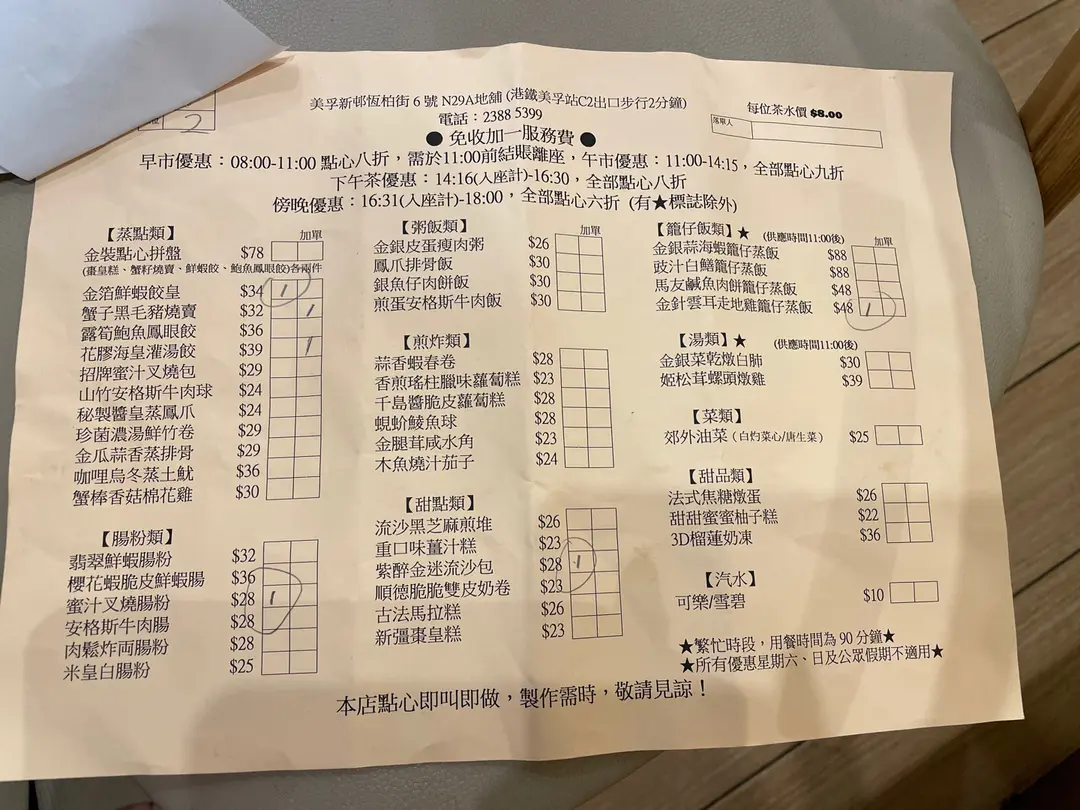 2
美孚新邨恆柏街 6 號 N29A地舖 (港鐵美孚站C2出口步行2分鐘)
電話：2388 5399
每位茶水價 $8.00
落單人
● 免收加一服務費 ●
早市優惠：08:00-11:00 點心八折，需於11:00前結賬離座，午市優惠：11:00-14:15，全部點心九折
下午茶優惠：14:16(入座計)-16:30，全部點心八折
傍晚優惠：16:31(入座計)-18:00，全部點心六折 (有★標誌除外)
【蒸點類】 加單
金裝點心拼盤 $78
(棗皇糕、蟹籽燒賣、鮮蝦餃、鮑魚鳳眼餃)各兩件
金箔鮮蝦餃皇 $34 1
蟹子黑毛豬燒賣 $32 1
露筍鮑魚鳳眼餃 $36
花膠海皇灌湯餃 $39 1
招牌蜜汁叉燒包 $29
山竹安格斯牛肉球 $24
秘製醬皇蒸鳳爪 $24
珍菌濃湯鮮竹卷 $29
金瓜蒜香蒸排骨 $29
咖哩烏冬蒸土魷 $36
蟹棒香菇棉花雞 $30
【腸粉類】
翡翠鮮蝦腸粉 $32
櫻花蝦脆皮鮮蝦腸 $36
蜜汁叉燒腸粉 $28 1
安格斯牛肉腸 $28
肉鬆炸両腸粉 $28
米皇白腸粉 $25
【粥飯類】 加單
金銀皮蛋瘦肉粥 $26
鳳爪排骨飯 $30
銀魚仔肉餅飯 $30
煎蛋安格斯牛肉飯 $30
【煎炸類】
蒜香蝦春卷 $28
香煎瑤柱臘味蘿蔔糕 $23
千島醬脆皮蘿蔔糕 $28
蜆蚧鯪魚球 $28
金腿茸咸水角 $23
木魚燒汁茄子 $24
【甜點類】
流沙黑芝麻煎堆 $26
重口味薑汁糕 $23
紫醉金迷流沙包 $28 1
順德脆脆雙皮奶卷 $23
古法馬拉糕 $26
新疆棗皇糕 $23
【籠仔飯類】★ (供應時間11:00後) 加單
金銀蒜海蝦籠仔蒸飯 $88
豉汁白鱔籠仔蒸飯 $88
馬友鹹魚肉餅籠仔蒸飯 $48
金針雲耳走地雞籠仔蒸飯 $48 1
【湯類】★ (供應時間11:00後)
金銀菜乾燉白肺 $30
姬松茸螺頭燉雞 $39
【菜類】
郊外油菜 (白灼菜心/唐生菜) $25
【甜品類】
法式焦糖燉蛋 $26
甜甜蜜蜜柚子糕 $22
3D榴蓮奶凍 $36
【汽水】
可樂/雪碧 $10
★繁忙時段，用餐時間為 90 分鐘★
★所有優惠星期六、日及公眾假期不適用★
本店點心即叫即做，製作需時，敬請見諒！